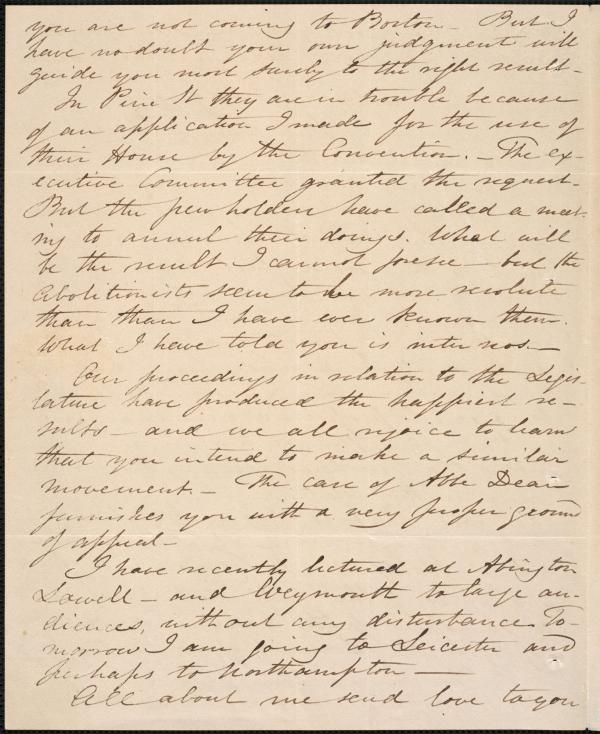 you are not coming to Boston – But I
have no doubt your own judgment will
guide you most surely to the right result –
In Pine St they are in trouble because
of an application I made for the use of
their House by the Convention. – The ex-
ecutive Committee granted the request –
But the pewholders have called a meet-
ing to annul their doings. What will
be the result I cannot foresee – but the
abolitionists seem to be more resolute
than than I have ever known them.
What I have told you is inter nos –
Our proceedings in relation to the Legis-
lature have produced the happiest re-
sults – and we all rejoice to learn
that you intend to make a similar
movement. – The case of Abbe Dean
furnishes you with a very proper ground
of appeal –
I have recently lectured at Abington
Lowell – and Weymouth to large au-
diences, without any disturbance. To-
morrow I am going to Leicester and
perhaps to Northampton –
All about me send love to you